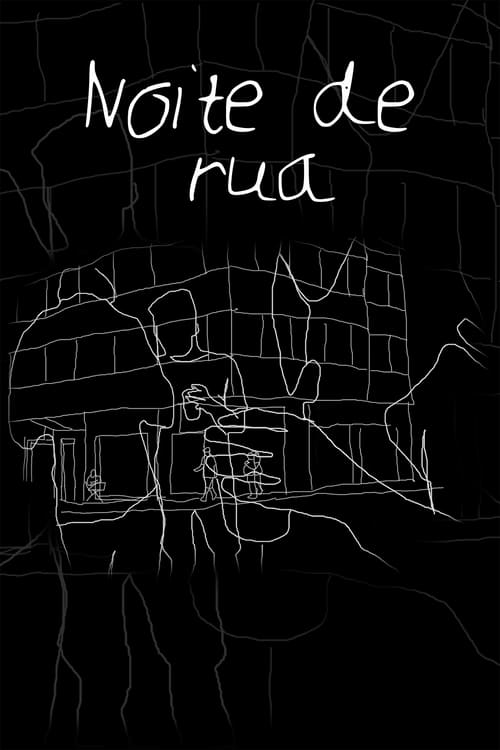 Noite de
rua